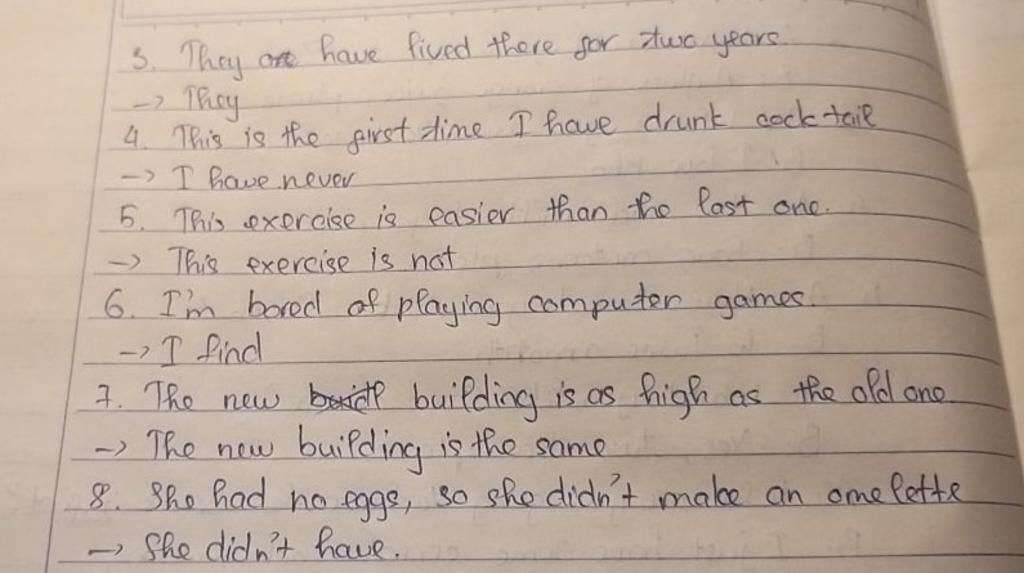 3. They are have lived there for two years.
-> They
4. This is the first time I have drunk cocktail
-> I have never
5. This exercise is easier than the last one.
-> This exercise is not
6. I'm bored of playing computer games.
-> I find
7. The new building is as high as the old one.
-> The new building is the same
8. She had no eggs, so she didn't make an omelette
-> She didn't have.